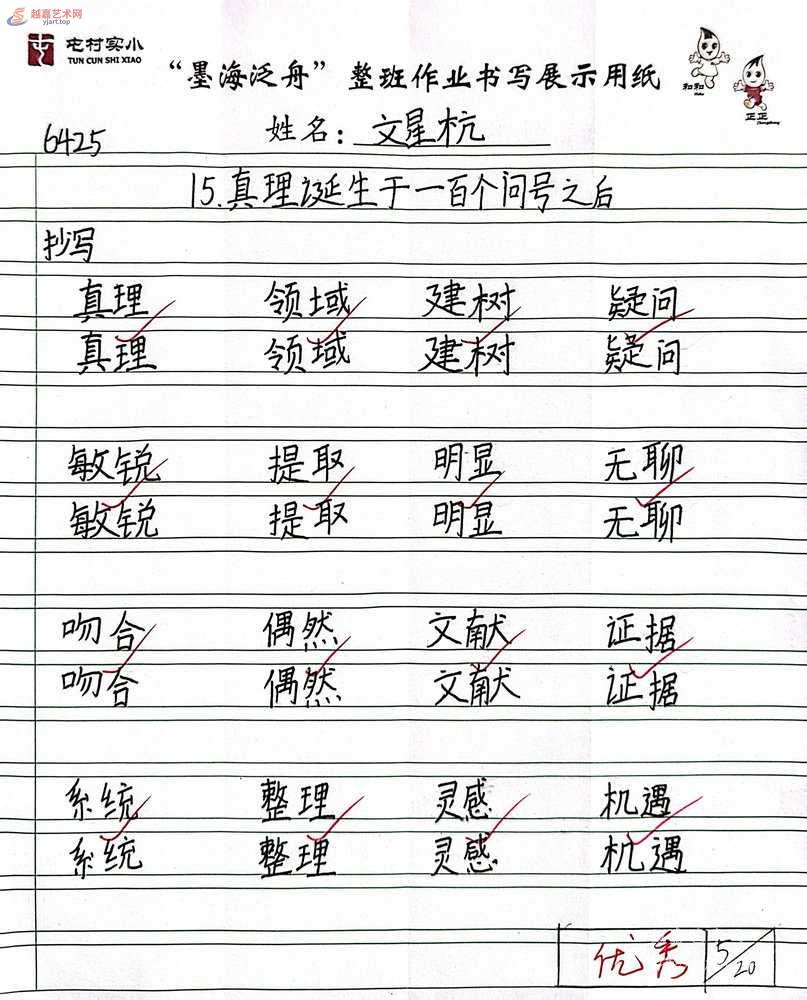 越嘉艺术网
yjart.top
屯村实小
TUN CUN SHI XIAO
“墨海泛舟”整班作业书写展示用纸
和和
正正
6425
姓名：文星杭
15.真理诞生于一百个问号之后
抄写
真理 领域 建树 疑问
真理 领域 建树 疑问
敏锐 提取 明显 无聊
敏锐 提取 明显 无聊
吻合 偶然 文献 证据
吻合 偶然 文献 证据
系统 整理 灵感 机遇
系统 整理 灵感 机遇
优秀 5/20